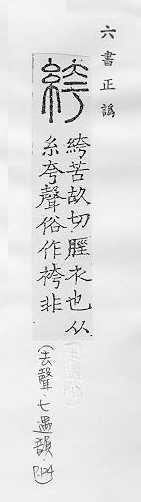 六書正譌
絝
絝苦故切脛衣也从
糸夸聲俗作袴非
(去聲・七遇韻・P.24)